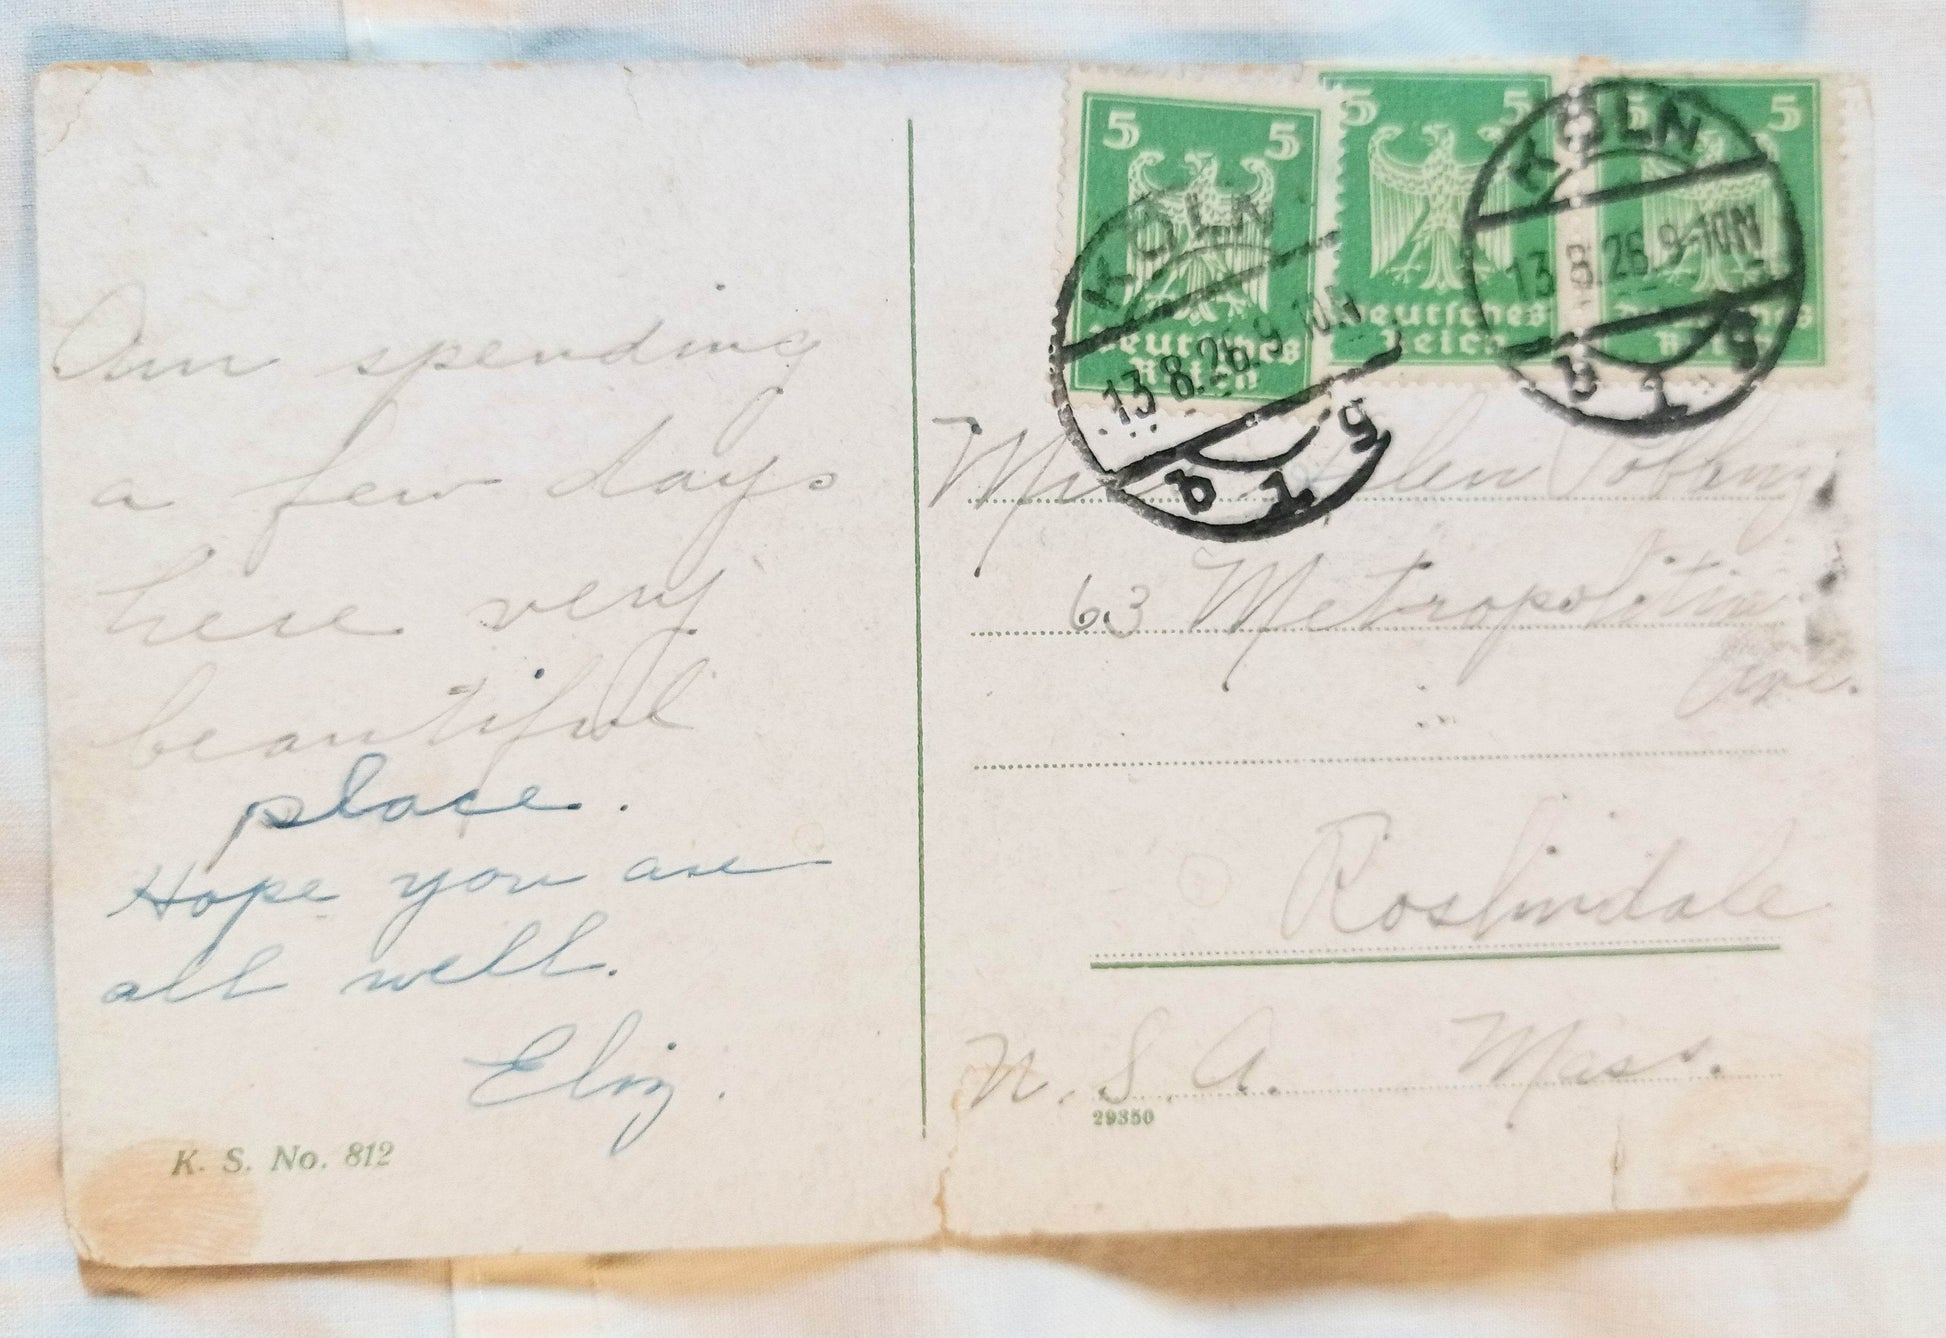 Am spending
a few days
here very
beautiful
place.
Hope you are
all well.
Eliz.
K. S. No. 812
5 5
Deutsches
Reich
5 5
Deutsches
Reich
5 5
Deutsches
Reich
KÖLN
13.8.26.9-10N
KÖLN
13.8.26.9-10N
Helen
63 Metropolitin
Ave.
Roslindale
U.S.A. Mass.
29350